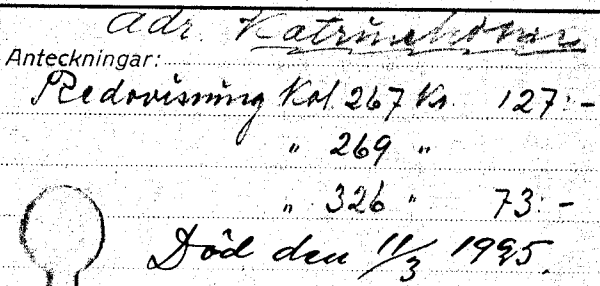 adr. Katrineholm
Anteckningar:
Redovisning Kol. 267 Kr. 127:-
" 269 "
" 326 " 73:-
Död den 11/3 1925.